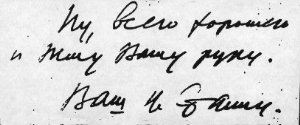 Ну, всего хорошего
и жму Вашу руку.
Ваш И.